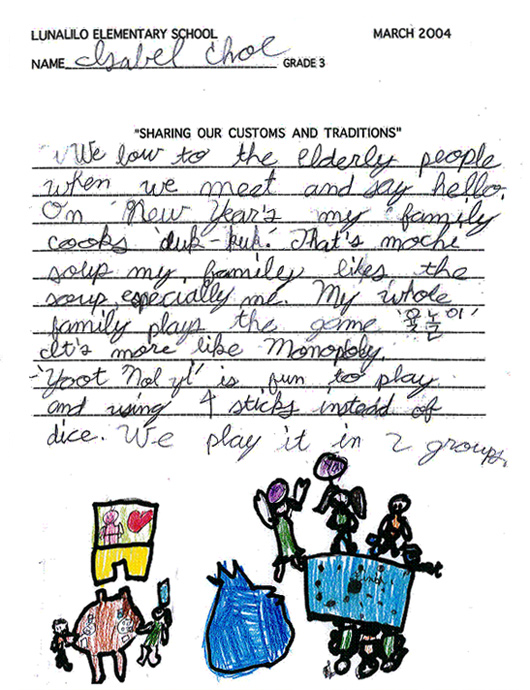 LUNALILO ELEMENTARY SCHOOL MARCH 2004
NAME Isabel Choe GRADE 3
"SHARING OUR CUSTOMS AND TRADITIONS"
We bow to the elderly people
when we meet and say hello.
On New Year's my family
cooks 'duk-kuk'. That's mochi
soup my familey likes the
soup especially me. My whole
family plays the game '윷놀이'
It's more like Monopoly.
'Yoot Nol yi' is fun to play
and using 4 sticks instead of
dice. We play it in 2 groups.